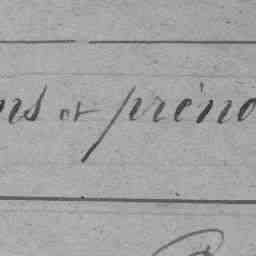 ns et préno